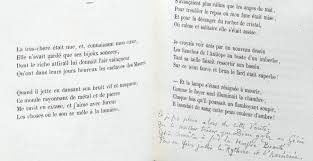 La très-chère était nue, et, connaissant mon cœur,
Elle n'avait gardé que ses bijoux sonores,
Dont le riche attirail lui donnait l'air vainqueur
Qu'ont dans leurs jours heureux les esclaves des Mores.
Quand il jette en dansant son bruit vif et moqueur,
Ce monde rayonnant de métal et de pierre
Me ravit en extase, et j'aime avec fureur
Les choses où le son se mêle à la lumière.
S'avançaient plus câlins que les anges du mal,
Pour troubler le repos où mon âme était mise,
Et pour la déranger du rocher de cristal,
Où calme et solitaire elle s'était assise.
Je croyais voir unis par un nouveau dessin
Les hanches de l'Antiope au buste d'un imberbe,
Tant sa taille faisait ressortir son bassin.
Sur ce teint fauve et brun le fard était superbe !
— Et la lampe s'étant résignée à mourir,
Comme le foyer seul illuminait la chambre,
Chaque fois qu'il poussait un flamboyant soupir,
Il inondait de sang cette peau couleur d'ambre !
plus de cette